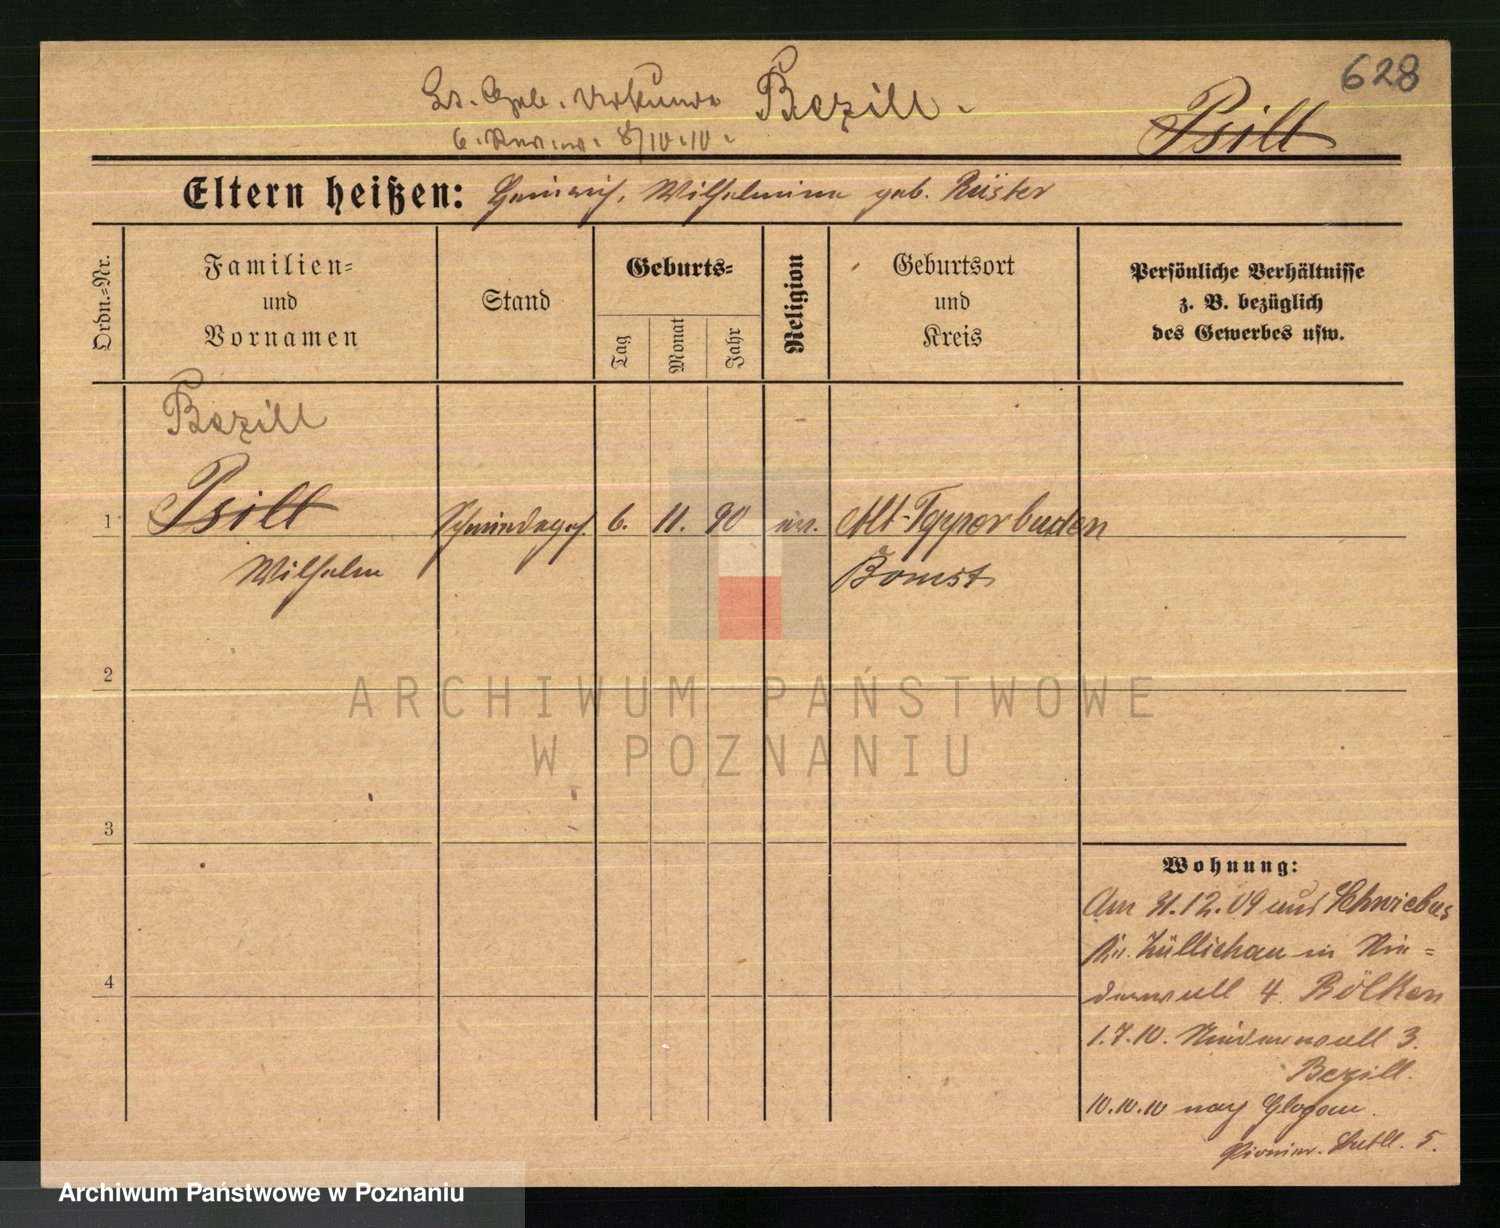 628
Lt. Geb. Urkunde Bezill.
Psill
8/10.10.
Eltern heißen: Heinrich, Wilhelmine geb. Rüster
Ordn.=Nr.
Familien=
und
Vornamen
Stand
Geburts=
Tag
Monat
Jahr
Religion
Geburtsort
und
Kreis
Persönliche Verhältnisse
z. B. bezüglich
des Gewerbes usw.
Bezill
1 Psill Schmiedeges. 6. 11. 90 ev. Alt-Tepperbuden
Wilhelm Bomst
2
3
4
Wohnung:
Am 31.12.09 aus Schwiebus
Kr. Züllichau in Nie=
derwall 4 Bölken
1.7.10. Niederwall 3.
Bezill.
10.10.10 nach Glogau.
Pionier. Batll. 5.
ARCHIWUM PAŃSTWOWE
W POZNANIU
Archiwum Państwowe w Poznaniu